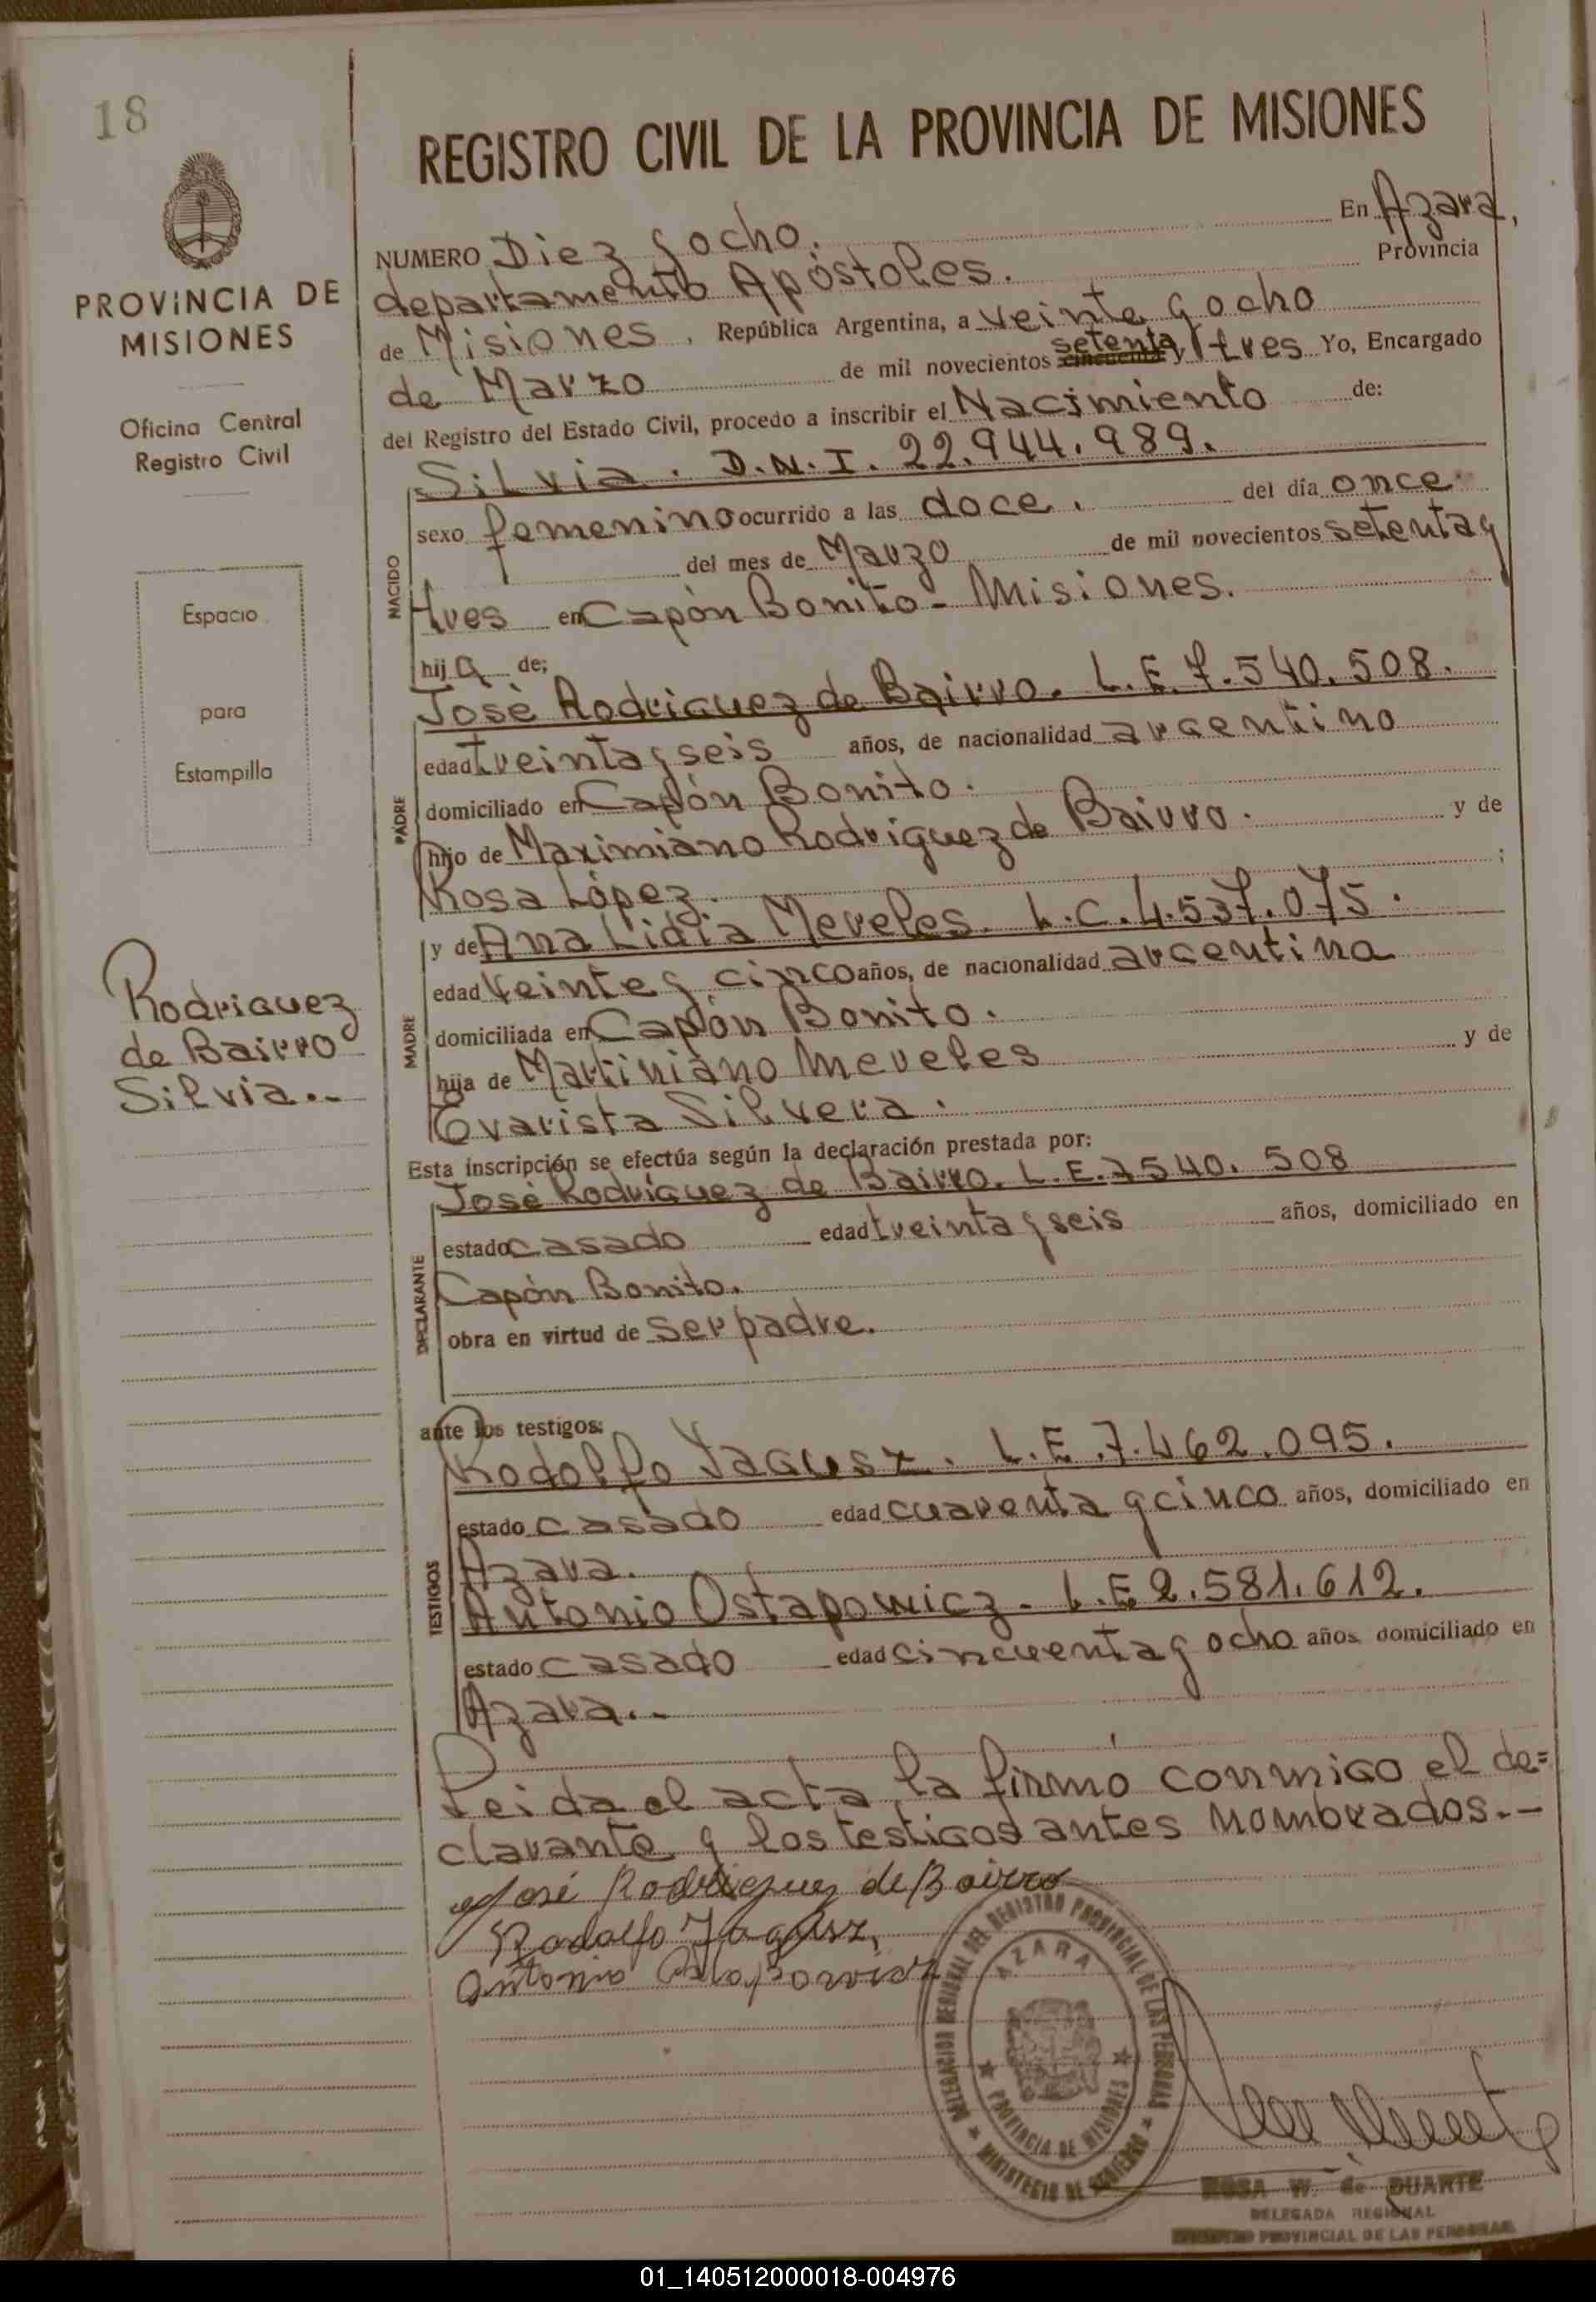 18
REGISTRO CIVIL DE LA PROVINCIA DE MISIONES
PROVINCIA DE
MISIONES
Oficina Central
Registro Civil
Espacio
para
Estampilla
Rodriguez
de Bairro
Silvia..-
NUMERO Diez y ocho. En Azara,
departamento Apóstoles. Provincia
de Misiones, República Argentina, a veinte y ocho
de Marzo de mil novecientos cincuenta setenta y tres Yo, Encargado
del Registro del Estado Civil, procedo a inscribir el Nacimiento de:
NACIDO
Silvia. D.N.I. 22.944.989.
sexo femenino ocurrido a las doce. del día once
del mes de Marzo de mil novecientos setenta y
tres en Capón Bonito - Misiones.
hija de:
PADRE
José Rodriguez de Bairro. L.E. 7.540.508.
edad treinta y seis años, de nacionalidad argentino
domiciliado en Capón Bonito.
hijo de Maximiano Rodriguez de Bairro. y de
Rosa López. ;
MADRE
y de Ana Lidia Mereles. L.C. 4.537.075.
edad veinte y cinco años, de nacionalidad argentina
domiciliada en Capón Bonito.
hija de Martiniano Mereles y de
Evarista Silvera.
Esta inscripción se efectúa según la declaración prestada por:
DECLARANTE
José Rodríguez de Bairro. L.E. 7540.508
estado casado edad treinta y seis años, domiciliado en
Capón Bonito.
obra en virtud de ser padre.
ante los testigos:
TESTIGOS
Rodolfo Jagusz. L.E. 7.462.095.
estado casado edad cuarenta y cinco años, domiciliado en
Azara.
Antonio Ostapowicz - L.E 2.581.612.
estado casado edad cincuenta y ocho años domiciliado en
Azara..-
Leida el acta, la firmó conmigo el de=
clarante y los testigos antes nombrados.-
José Rodriguez de Bairro
Rodolfo Jagusz,
Antonio Ostapowicz
DELEGACION REGIONAL DEL REGISTRO PROVINCIAL DE LAS PERSONAS
AZARA
PROVINCIA DE MISIONES
MINISTERIO DE GOBIERNO
ROSA W. de DUARTE
DELEGADA REGIONAL
REGISTRO PROVINCIAL DE LAS PERSONAS
01_140512000018-004976